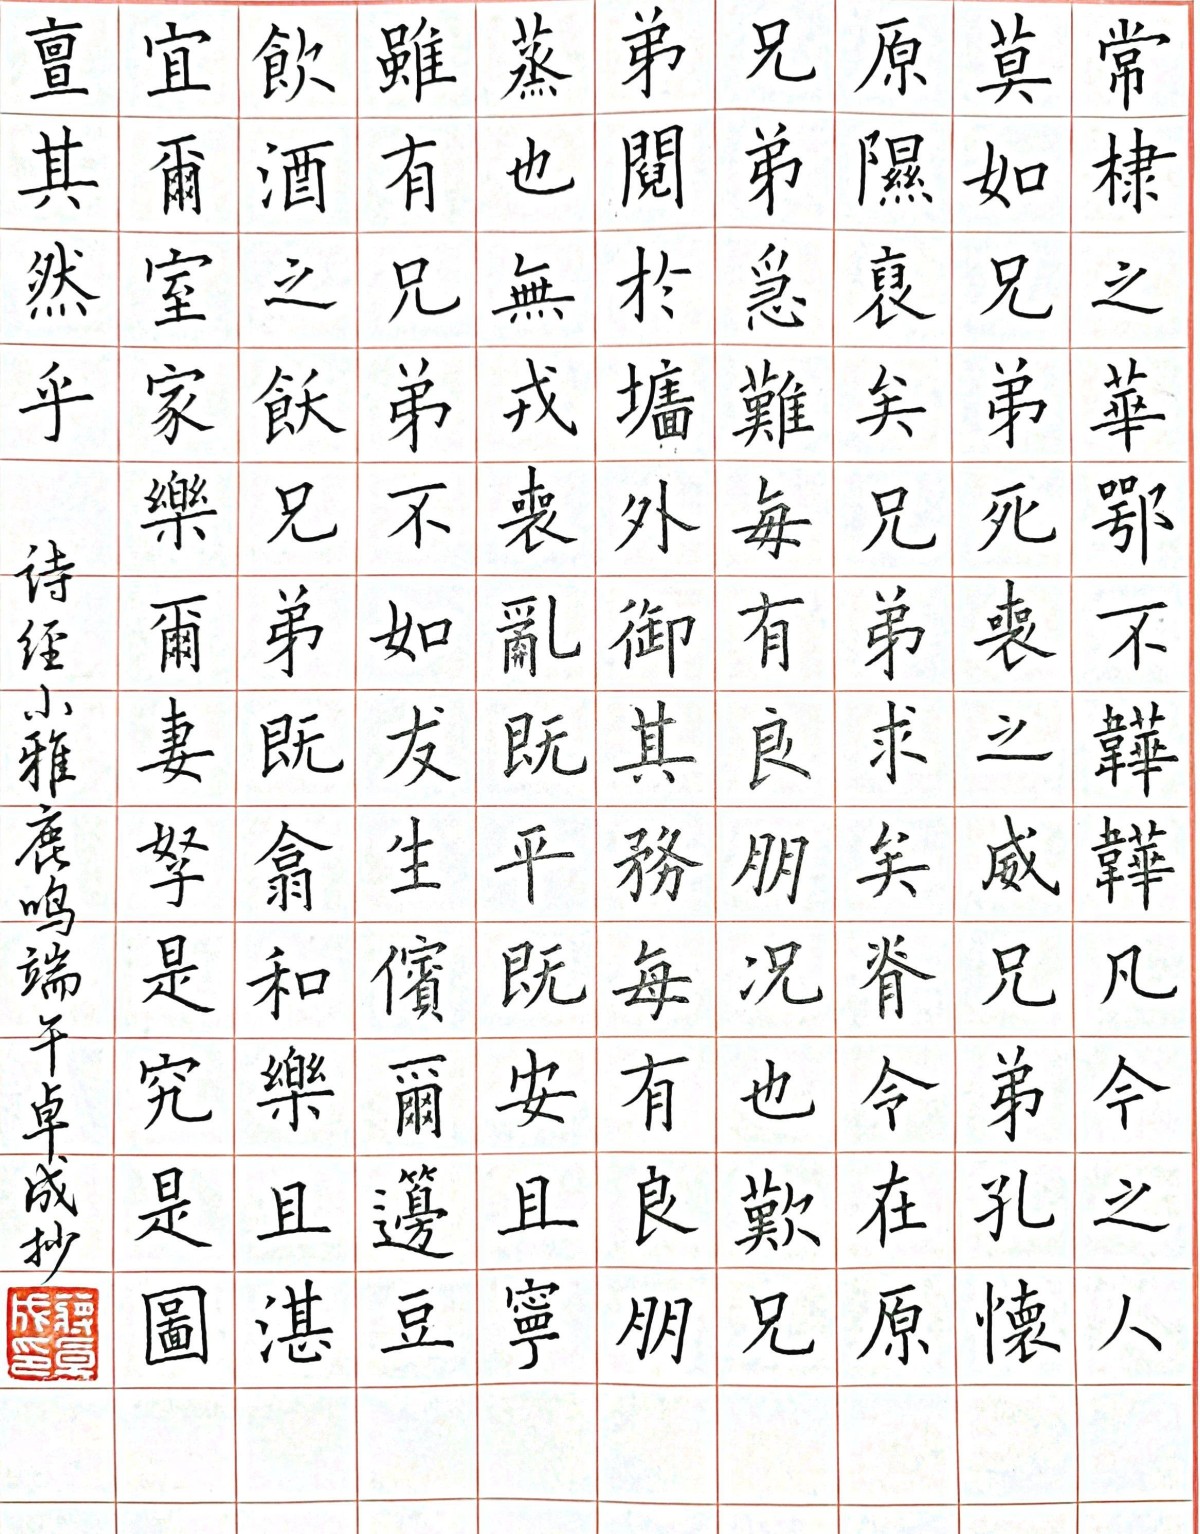 常棣之華鄂不韡韡凡今之人
莫如兄弟死喪之威兄弟孔懷
原隰裒矣兄弟求矣脊令在原
兄弟急難每有良朋况也歎兄
弟鬩於墻外御其務每有良朋
蒸也無戎喪亂既平既安且寧
雖有兄弟不如友生儐爾籩豆
飲酒之飫兄弟既翕和樂且湛
宜爾室家樂爾妻孥是究是圖
亶其然乎
诗经小雅鹿鸣端午卓成抄